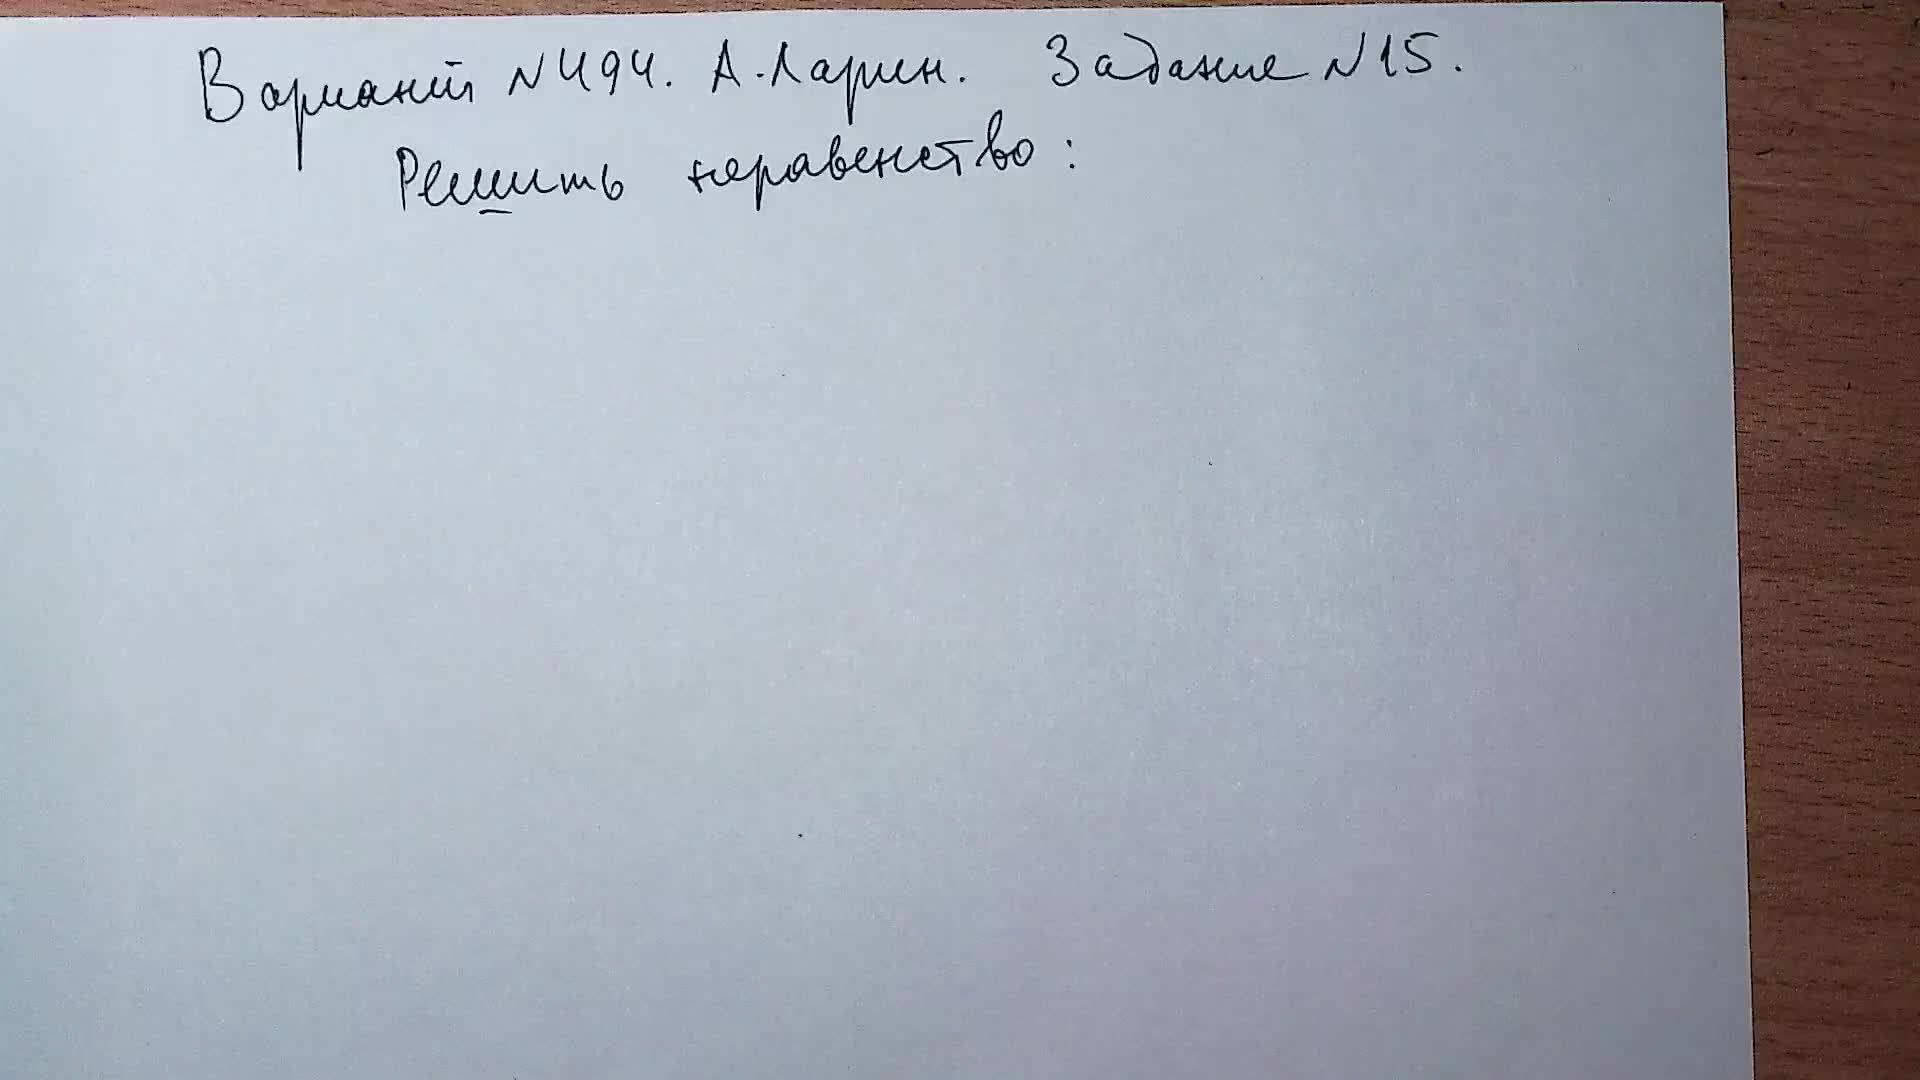 Вариант №494. А. Ларин. Задание №15.
Решить неравенство: